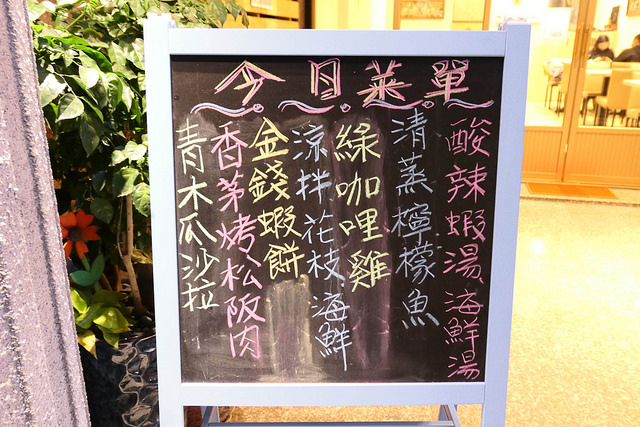 今日菜單
酸辣蝦湯、海鮮湯
清蒸檸檬魚
綠咖哩雞
涼拌花枝、海鮮
金錢蝦餅
香茅烤松阪肉
青木瓜沙拉